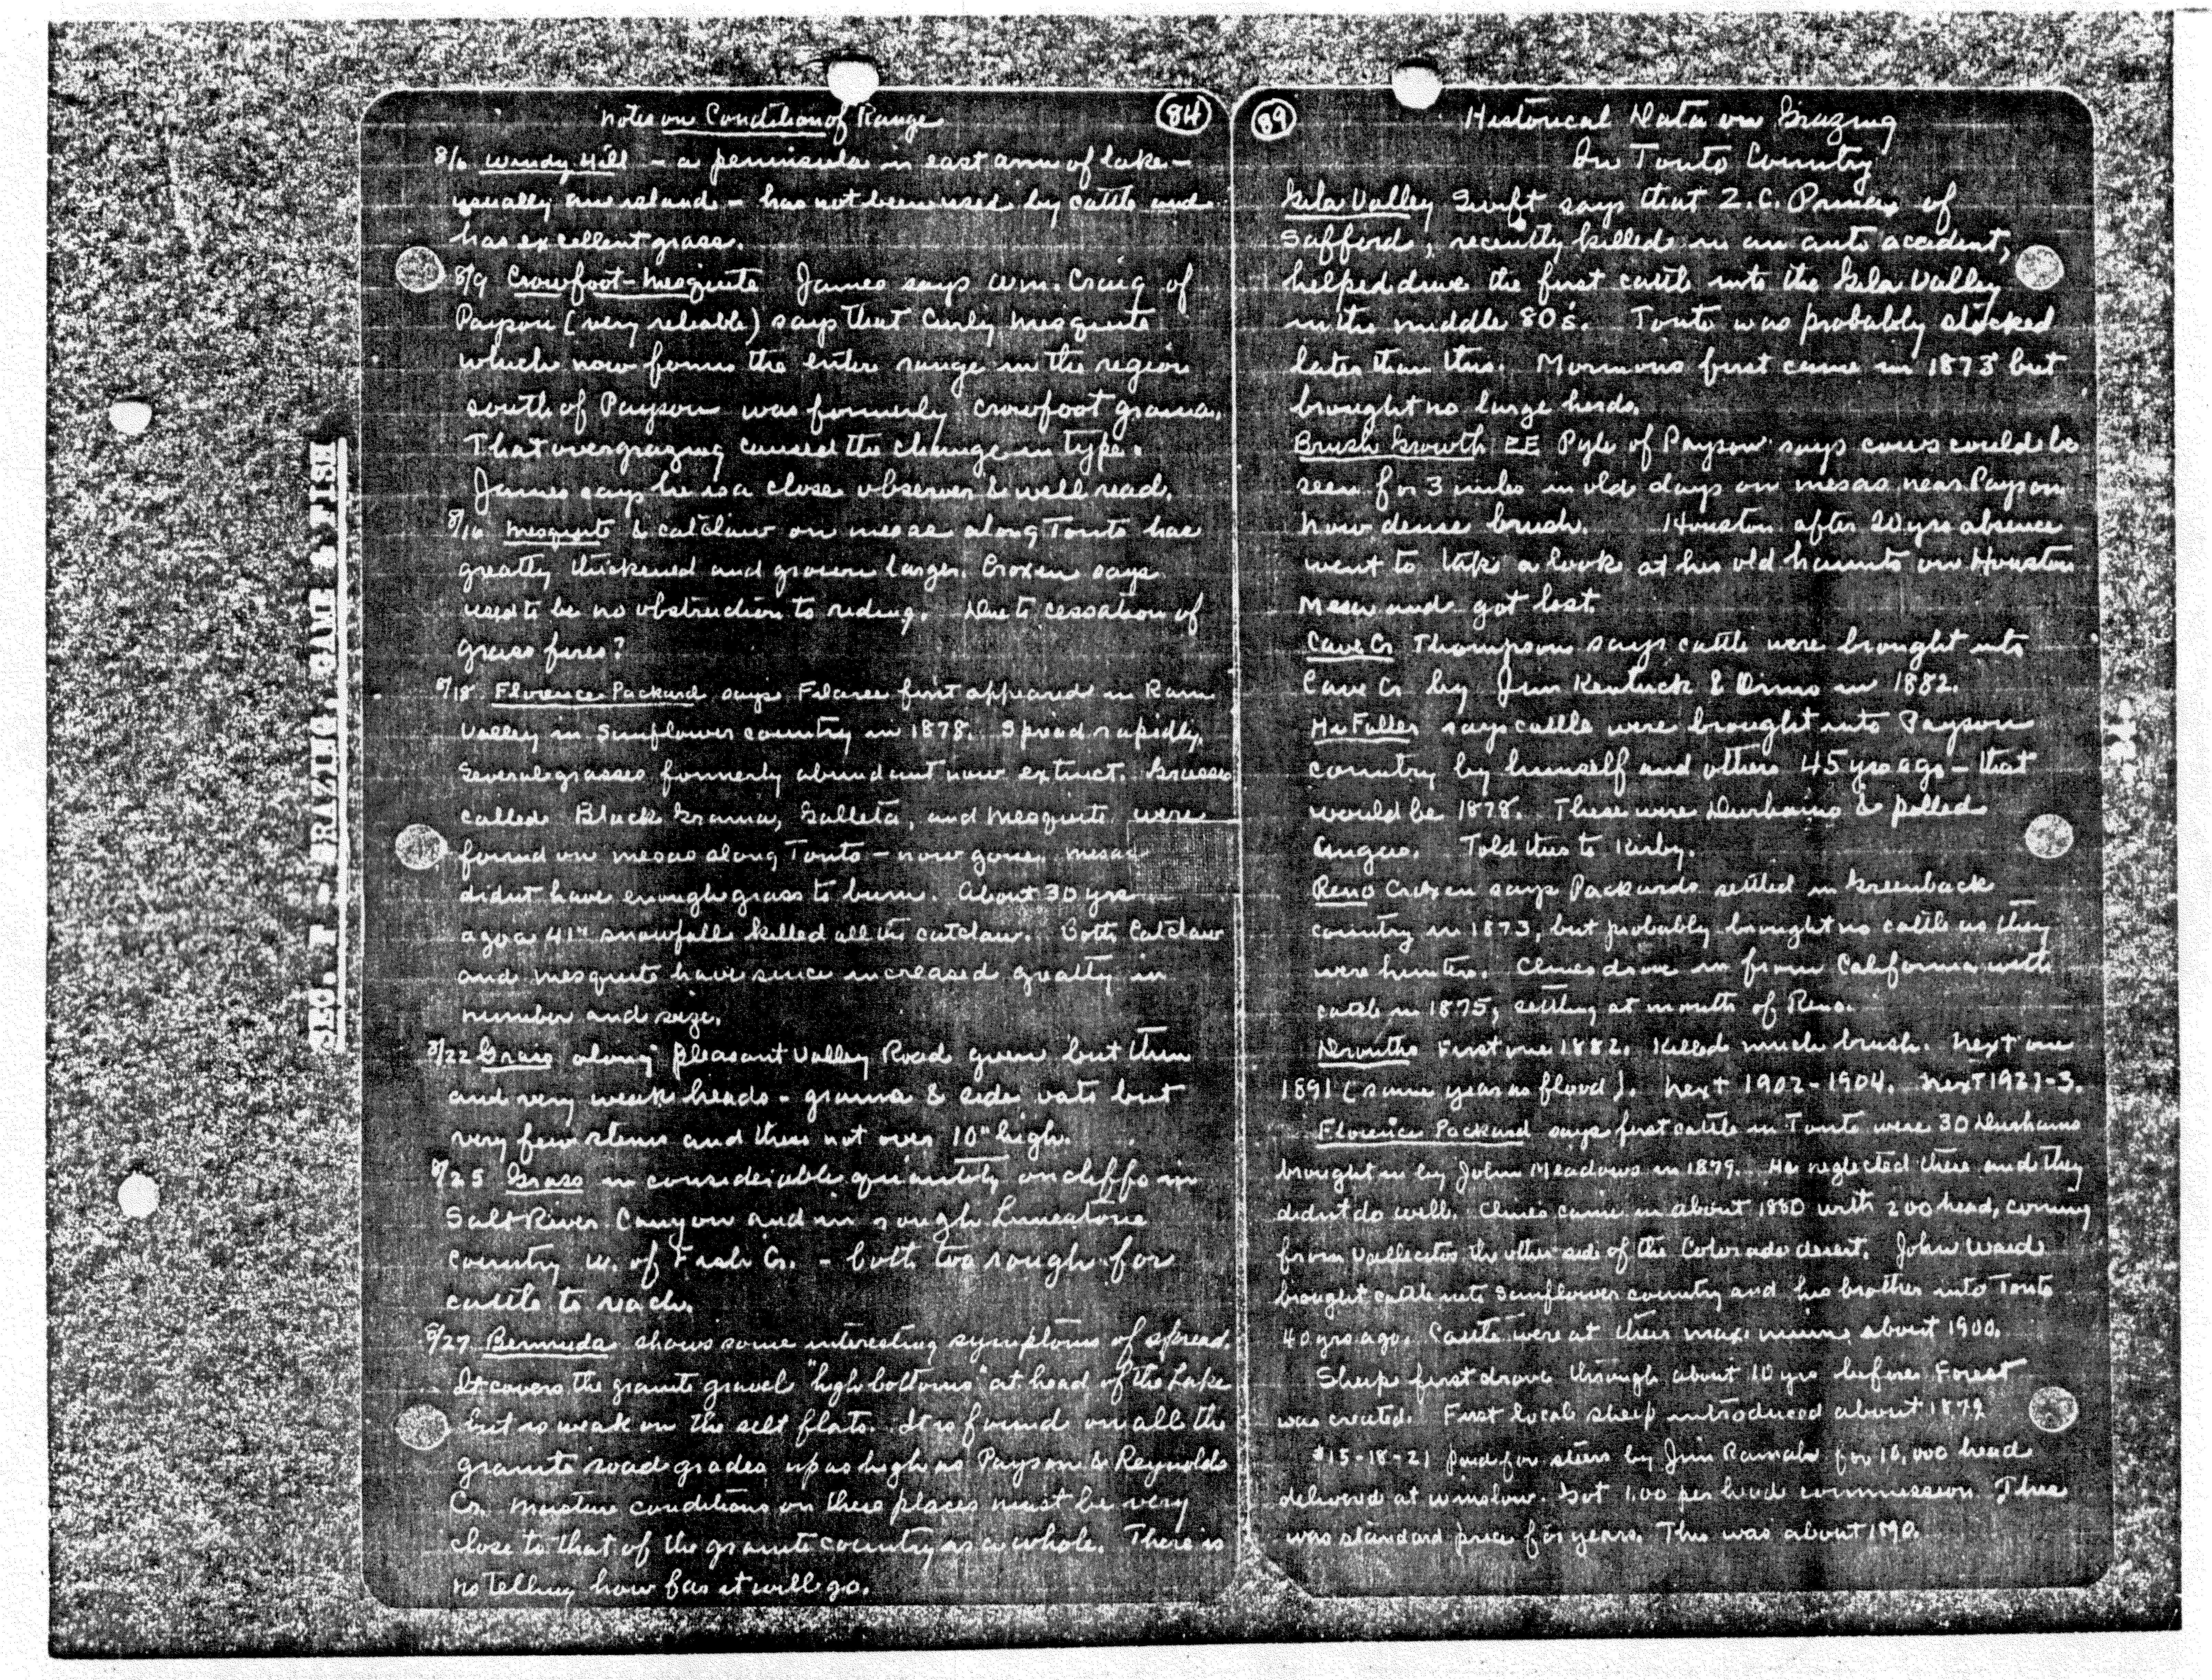 SEC. T - GRAZING, GAME & FISH
Notes on Condition of Range
84
8/6 Windy Hill - a peninsula in east arm of lake -
usually an island - has not been used by cattle and
has excellent grass.
8/9 Crowfoot-Mesquite James says Wm. Craig of
Payson (very reliable) says that Curly Mesquite
which now forms the entire range in the region
south of Payson was formerly crowfoot grama.
That overgrazing caused the change in type.
James says he is a close observer & well read.
8/16 Mesquite & catclaw on mesas along Tonto has
greatly thickened and grown larger. Croxen says
used to be no obstruction to riding. Due to cessation of
grass fires?
8/18 Florence Packard says Filaree first appeared in Ram
Valley in Sunflower country in 1878. Spread rapidly.
Several grasses formerly abundant now extinct. Grasses
called Black Grama, Galleta, and Mesquite were
found on mesas along Tonto - now gone. Mesas
didnt have enough grass to burn. About 30 yrs
ago a 41" snowfall killed all the catclaw. Both Catclaw
and mesquite have since increased greatly in
number and size.
8/22 Grass along Pleasant Valley Road green but thin
and very weak heads - grama & side oats but
very few stems and these not over 10" high.
8/25 Grass in considerable quantity on cliffs in
Salt River Canyon and in rough Limestone
country W. of Fish Cr. - both too rough for
cattle to reach.
8/27 Bermuda shows some interesting symptoms of spread.
It covers the granite gravel "high bottoms" at head of the Lake
but is weak on the silt flats. It is found on all the
granite road grades up as high as Payson & Reynolds
Cr. Moisture conditions on these places must be very
close to that of the granite country as a whole. There is
no telling how far it will go.
89
Historical Data on Grazing
In Tonto Country
Gila Valley Swift says that Z.C. Prina of
Safford, recently killed in an auto accident,
helped drive the first cattle into the Gila Valley
in the middle 80's. Tonto was probably stocked
later than this. Mormons first came in 1873 but
brought no large herds.
Brush Growth EE Pyle of Payson says cows could be
seen for 3 miles in old days on mesas near Payson
now dense brush. Houston after 20 yrs absence
went to take a look at his old haunts on Houston
Mesa and got lost.
Cave Cr Thompson says cattle were brought into
Cave Cr by Jim Kentuck & in 1882.
Hi Fuller says cattle were brought into Payson
country by himself and others 45 yrs ago - that
would be 1878. These were Durhams & polled
Angus. Told this to Kirby.
Reno Croxen says Packards settled in Greenback
country in 1873, but probably brought no cattle as they
were hunters. Clines drove in from California with
cattle in 1875, settling at mouth of Reno.
Drouths First one 1882. Killed much brush. Next one
1891 (same year as flood). Next 1902-1904. Next 1921-3.
Florence Packard says first cattle in Tonto were 30 Durhams
brought in by John Meadows in 1879. He neglected these and they
didnt do well. Clines came in about 1880 with 200 head, coming
from Vallecitos the other side of the Colorado desert. John Ward
brought cattle into Sunflower country and his brother into Tonto
40 yrs ago. Cattle were at their maximum about 1900.
Sheep first drove through about 10 yrs before Forest
was created. First local sheep introduced about 1879
$15-18-21 paid for steers by Jim Ramah for 10,000 head
delivered at Winslow. Got 1.00 per head commission. This
was standard price for years. This was about 1890.